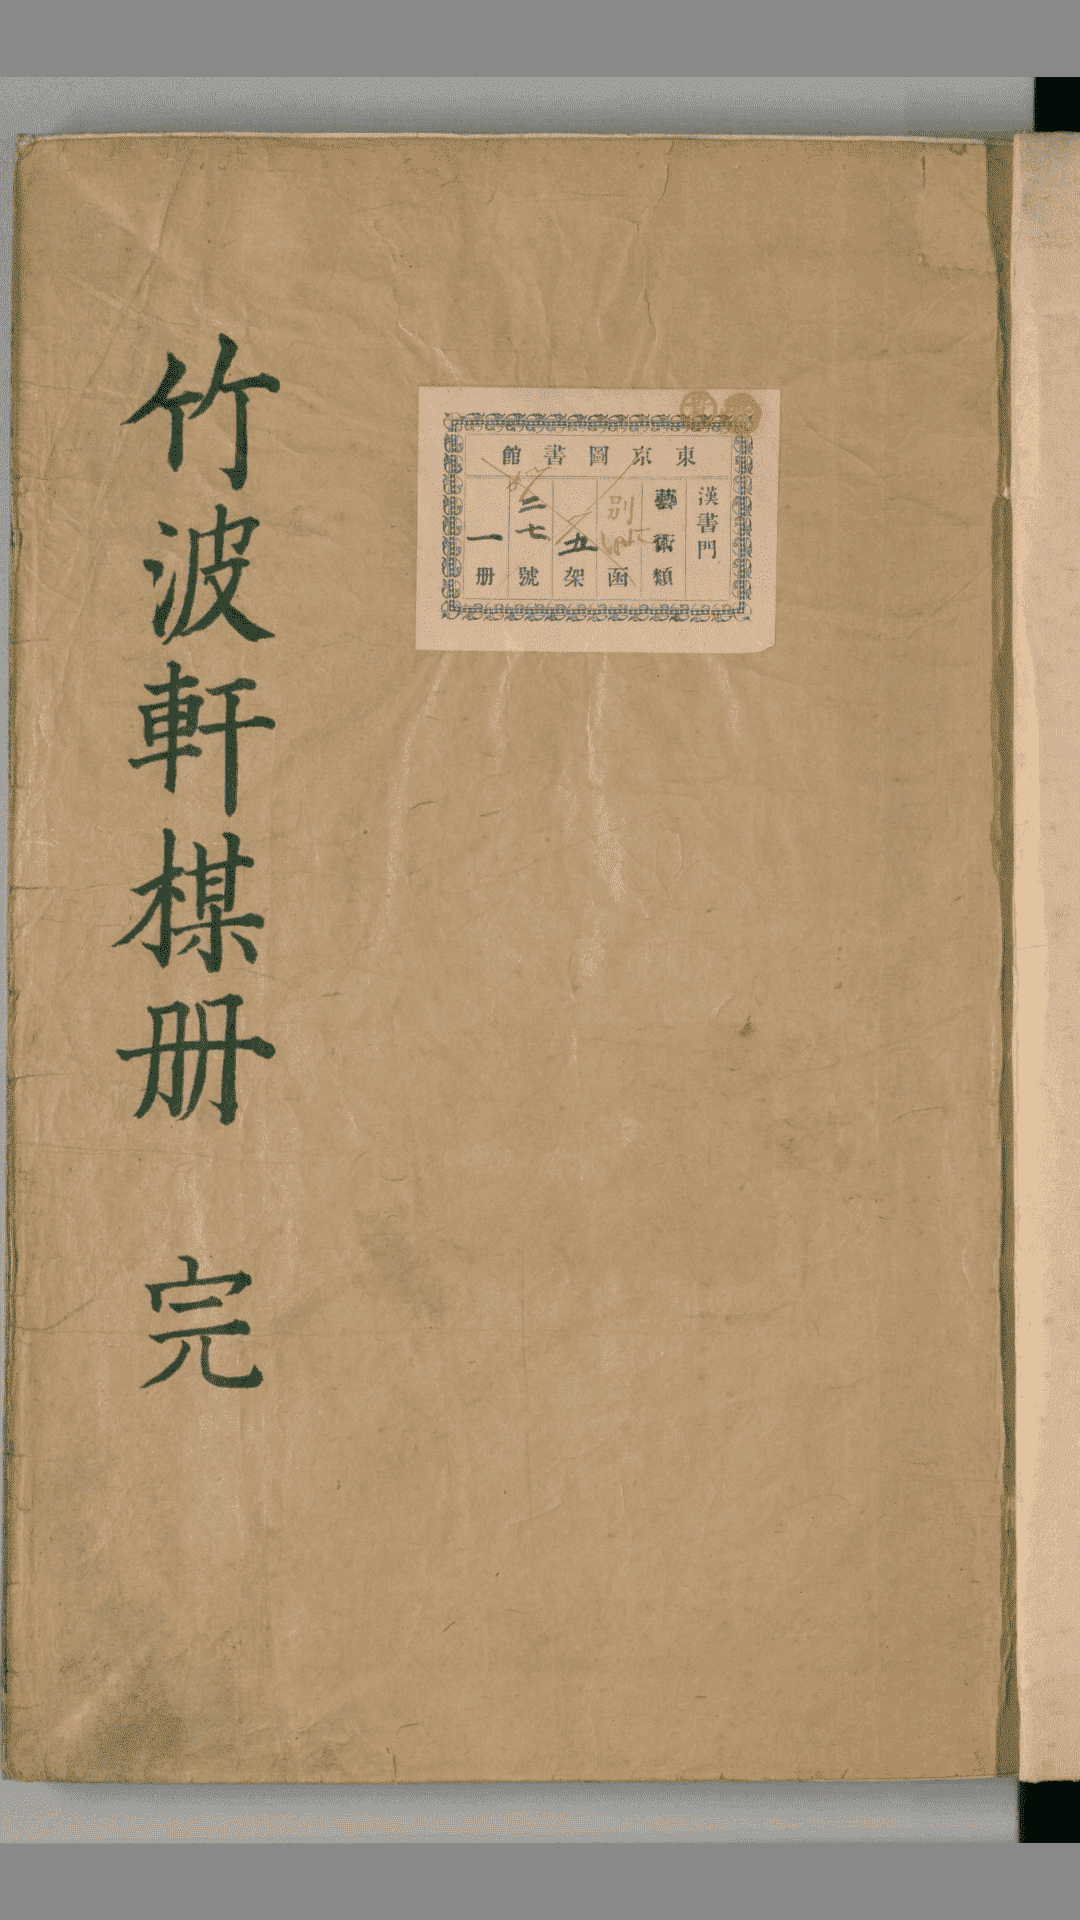 東京圖書館
漢書門
藝術類
別 函
五架
二七號
一册
竹波軒楳册 完